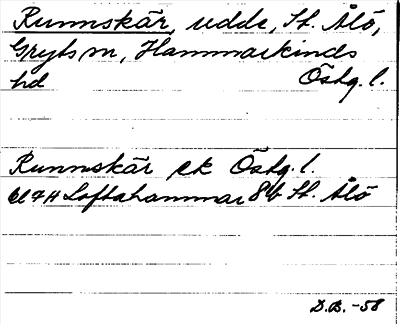 Runnskär, udde, St. Ålö,
Gryts sn, Hammarkinds
hd Östg. l.
Runnskär ek Östg. l.
Bl 7H Loftahammar 8b St. Ålö
D.B. -58